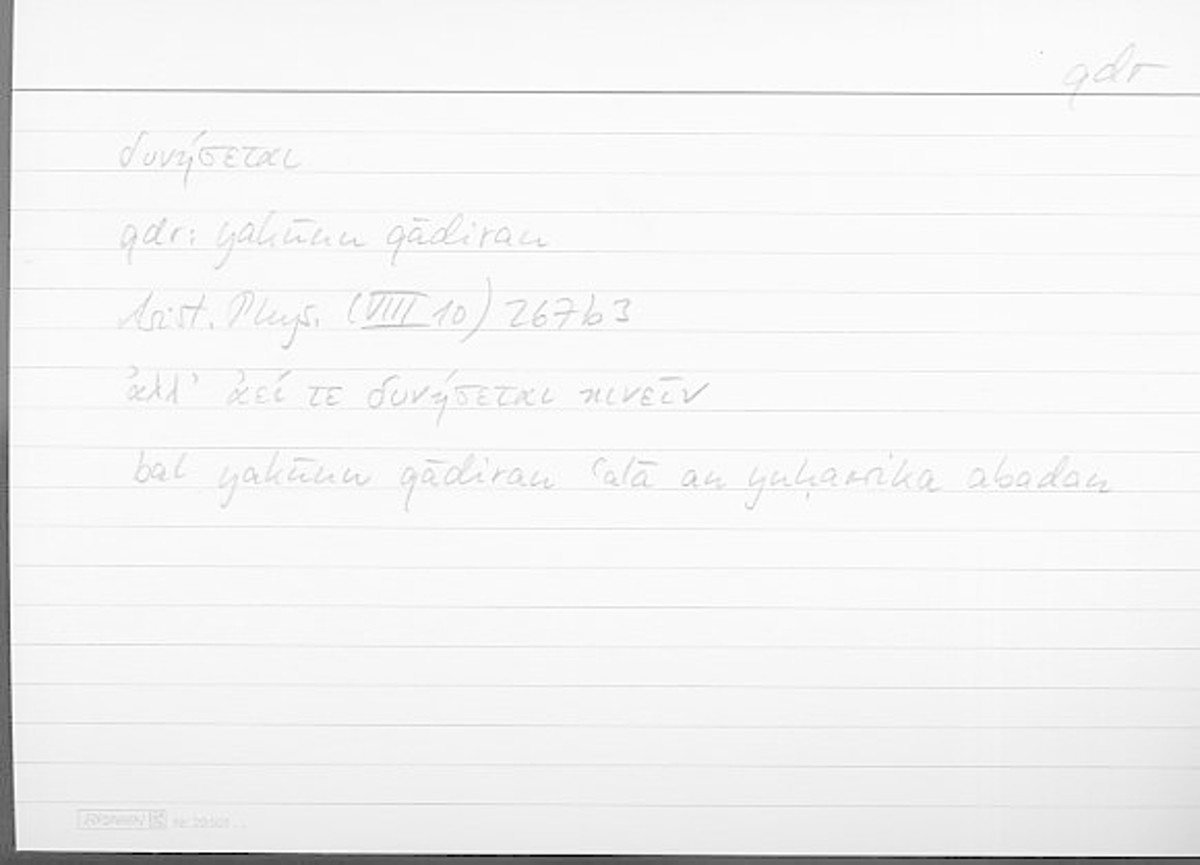 qdr
δυνήσεται
qdr: yakūnu qādiran
Arist. Phys. (VIII 10) 267b3
ἀλλ' ἀεί τε δυνήσεται κινεῖν
bal yakūnu qādiran ʿalā an yuḥarrika abadan